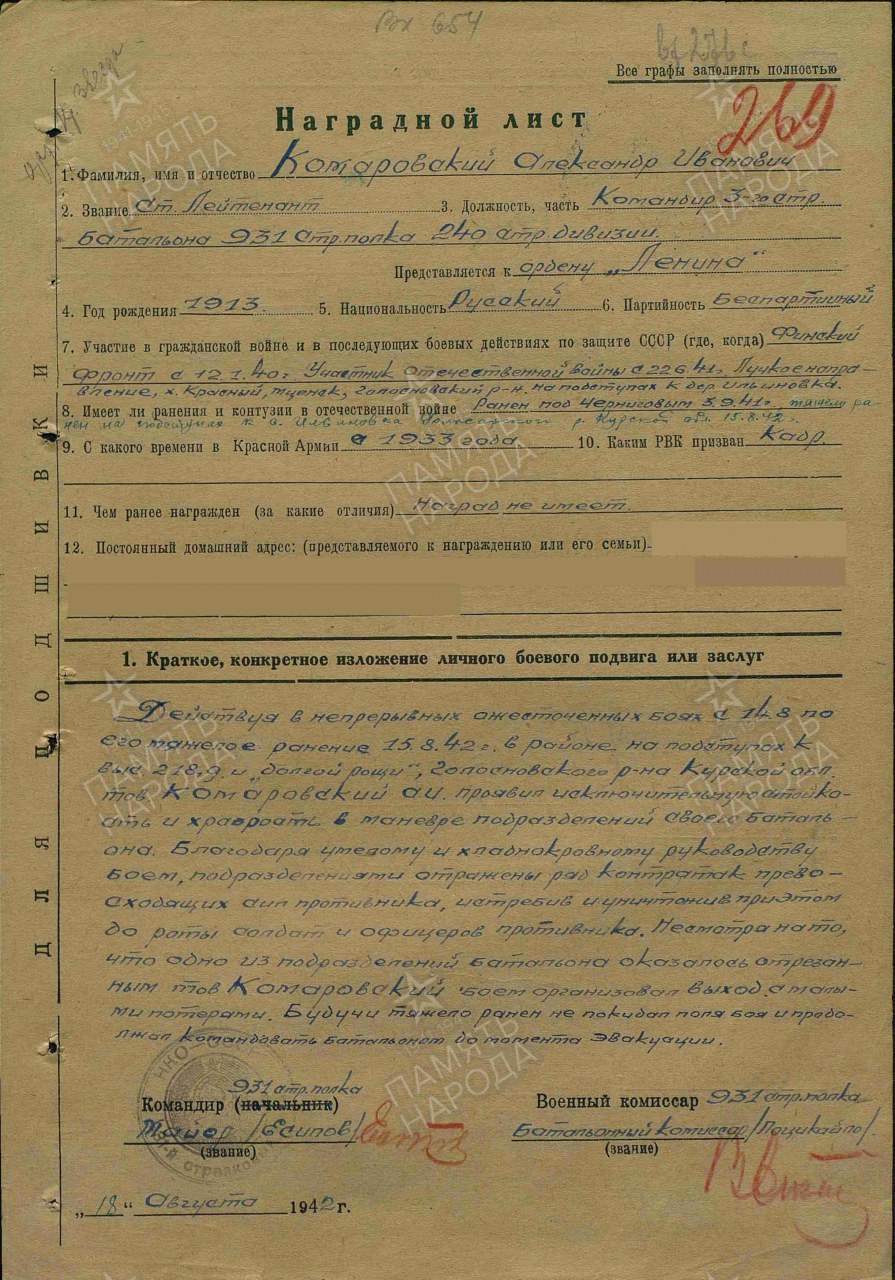 вх 654
Все графы заполнять полностью
269
Наградной лист
1. Фамилия, имя и отчество Комаровский Александр Иванович
2. Звание Ст. Лейтенант 3. Должность, часть Командир 3-го стр.
Батальона 931 стр. полка 240 стр. дивизии.
Представляется к ордену „Ленина"
4. Год рождения 1913. 5. Национальность Русский 6. Партийность Беспартийный
7. Участие в гражданской войне и в последующих боевых действиях по защите СССР (где, когда) Финский
фронт с 12.1.40г. Участник отечественной войны с 22.6.41г. направление, х. Красный, Мценск, Голосновский р-н. на подступах к дер. Ильиновка.
8. Имеет ли ранения и контузии в отечественной войне Ранен под Черниговым 3.9.41г., тяжело ра-
нен на подступах к с. Ильиновка р. Курской обл. 15.8.42г.
9. С какого времени в Красной Армии с 1933 года 10. Каким РВК призван Кадр.
11. Чем ранее награжден (за какие отличия) Наград не имеет.
12. Постоянный домашний адрес: (представляемого к награждению или его семьи)
1. Краткое, конкретное изложение личного боевого подвига или заслуг
Действуя в непрерывных ожесточенных боях с 14.8 по
его тяжелое ранение 15.8.42г. в районе на подступах к
выс. 218,9 и „долгой рощи", Голосновского р-на Курской обл.
тов Комаровский А.И. проявил исключительную стойко-
сть и храбрость в маневре подразделений своего баталь-
она. Благодаря умелому и хладнокровному руководству
боем, подразделениями отражены ряд контратак прево-
сходящих сил противника, истребив и уничтожив при этом
до роты солдат и офицеров противника. Несмотря на то,
что одно из подразделений батальона оказалось отрезан-
ным тов Комаровский боем организовал выход с малы-
ми потерями. Будучи тяжело ранен не покидал поля боя и продо-
лжал командовать батальоном до момента эвакуации.
931 стр. полка
Командир (начальник) Военный комиссар 931 стр. полка
Майор /Есипов/ Батальонный комиссар
(звание) (звание)
„18" Августа 1942 г.
ДЛЯ ПОДШИВКИ
ПАМЯТЬ НАРОДА